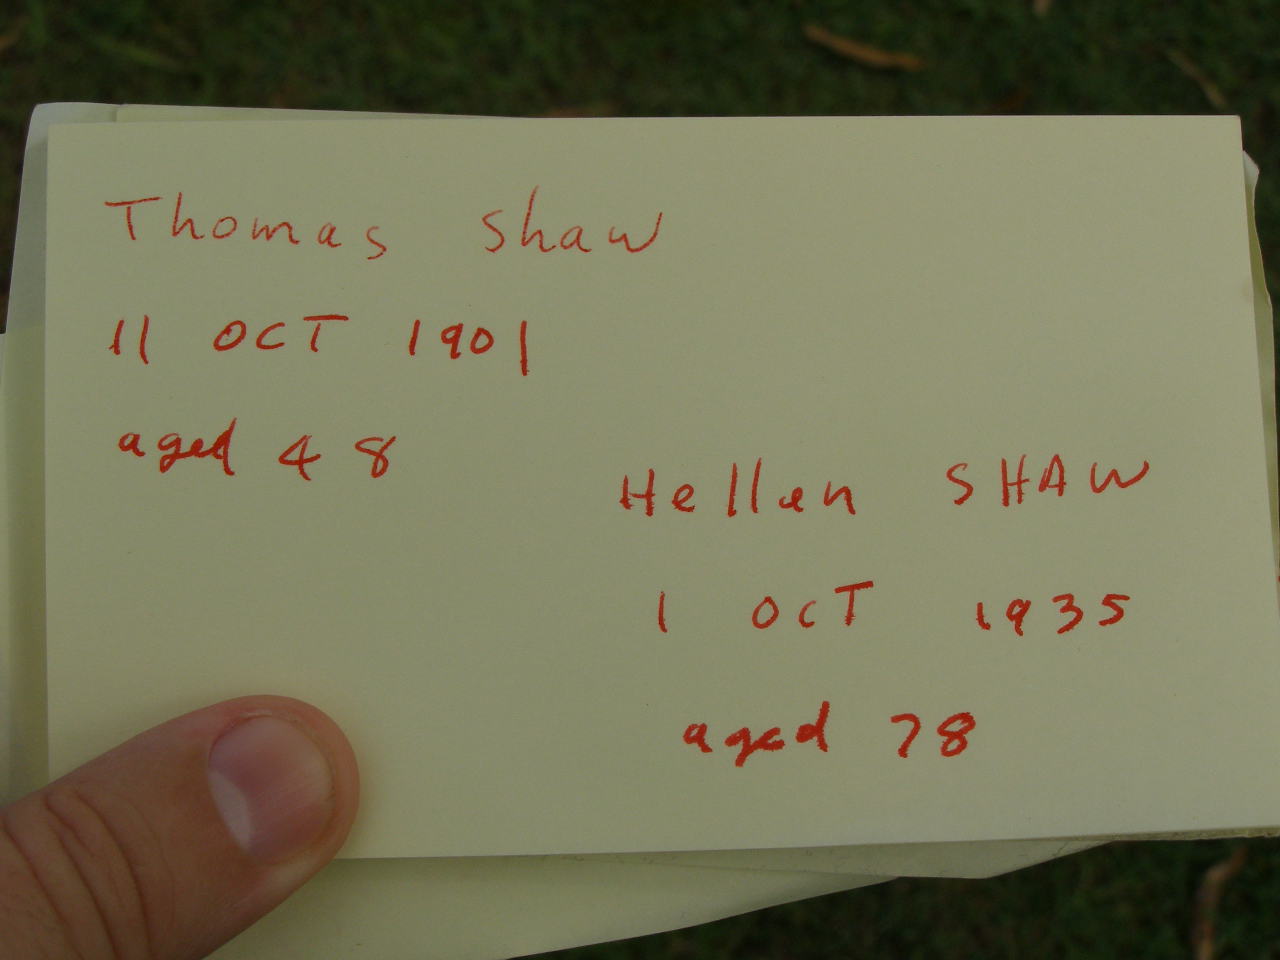 Thomas Shaw
11 OCT 1901
aged 48
Hellen SHAW
1 OCT 1935
aged 78